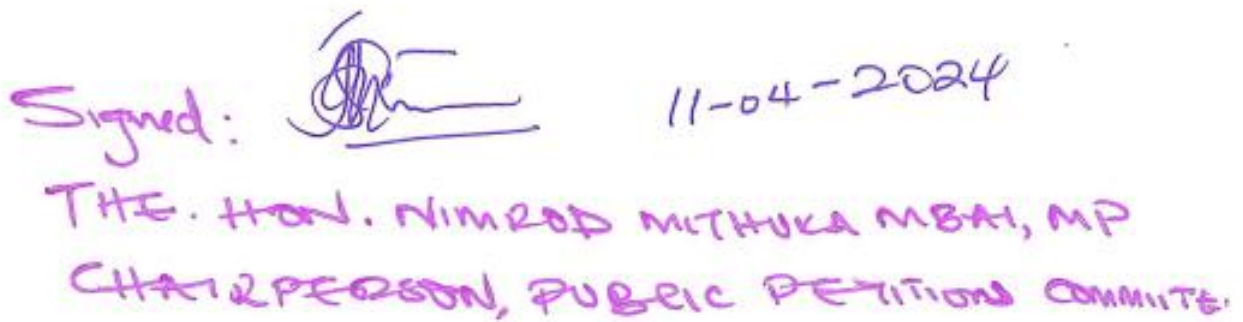 Signed: 11-04-2024
THE. HON. NIMROD MITHUKA MBAI, MP
CHAIRPERSON, PUBLIC PETITIONS COMMITTE.